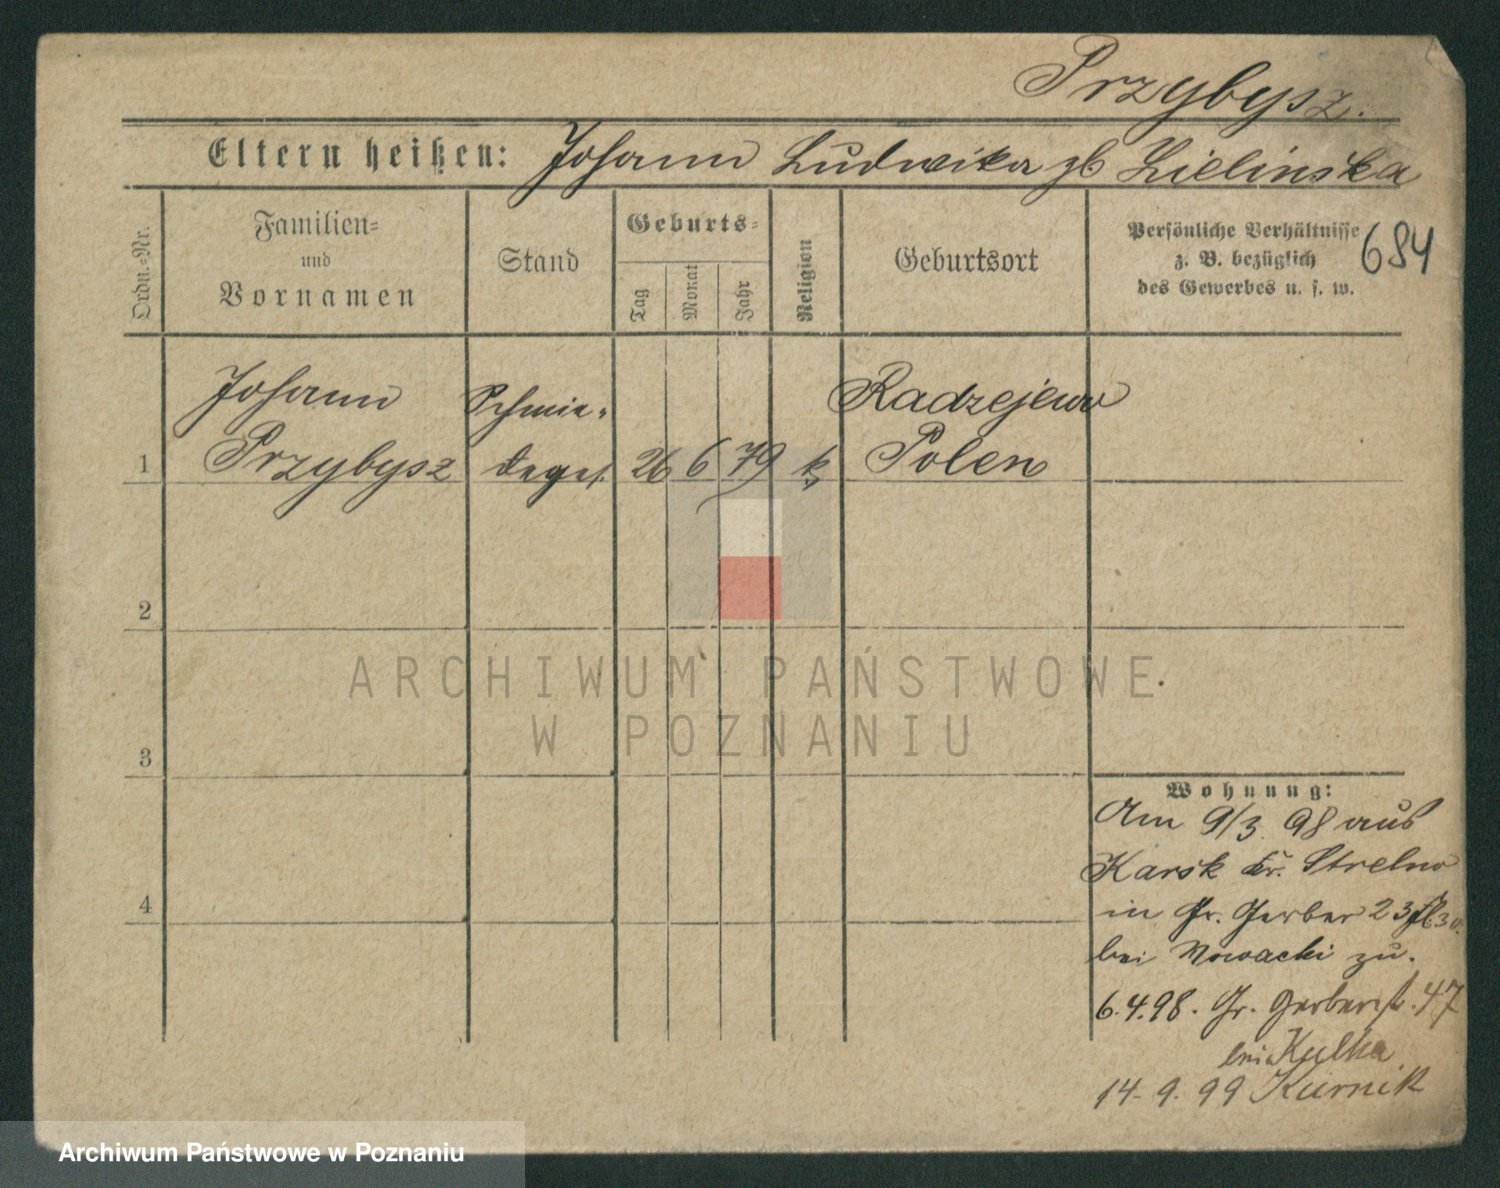 Przybysz.
Eltern heißen: Johann Ludwika gb Zielinska
Ordn.-Nr.
Familien-
und
Vornamen
Stand
Geburts-
Tag
Monat
Jahr
Religion
Geburtsort
Persönliche Verhältnisse
z. B. bezüglich
des Gewerbes u. s. w.
684
Johann Schmie- Radzejewo
1 Przybysz deges. 26 6 79 k Polen
2
ARCHIWUM PAŃSTWOWE
W POZNANIU
3
Wohnung:
Am 9/3. 98 aus
Karsk Kr. Strelno
4
in Gr. Gerber 23
bei Nowacki zu.
6.4.98. Gr. Gerberst. 47
bei Kulka
14. 9. 99 Kurnik
Archiwum Państwowe w Poznaniu